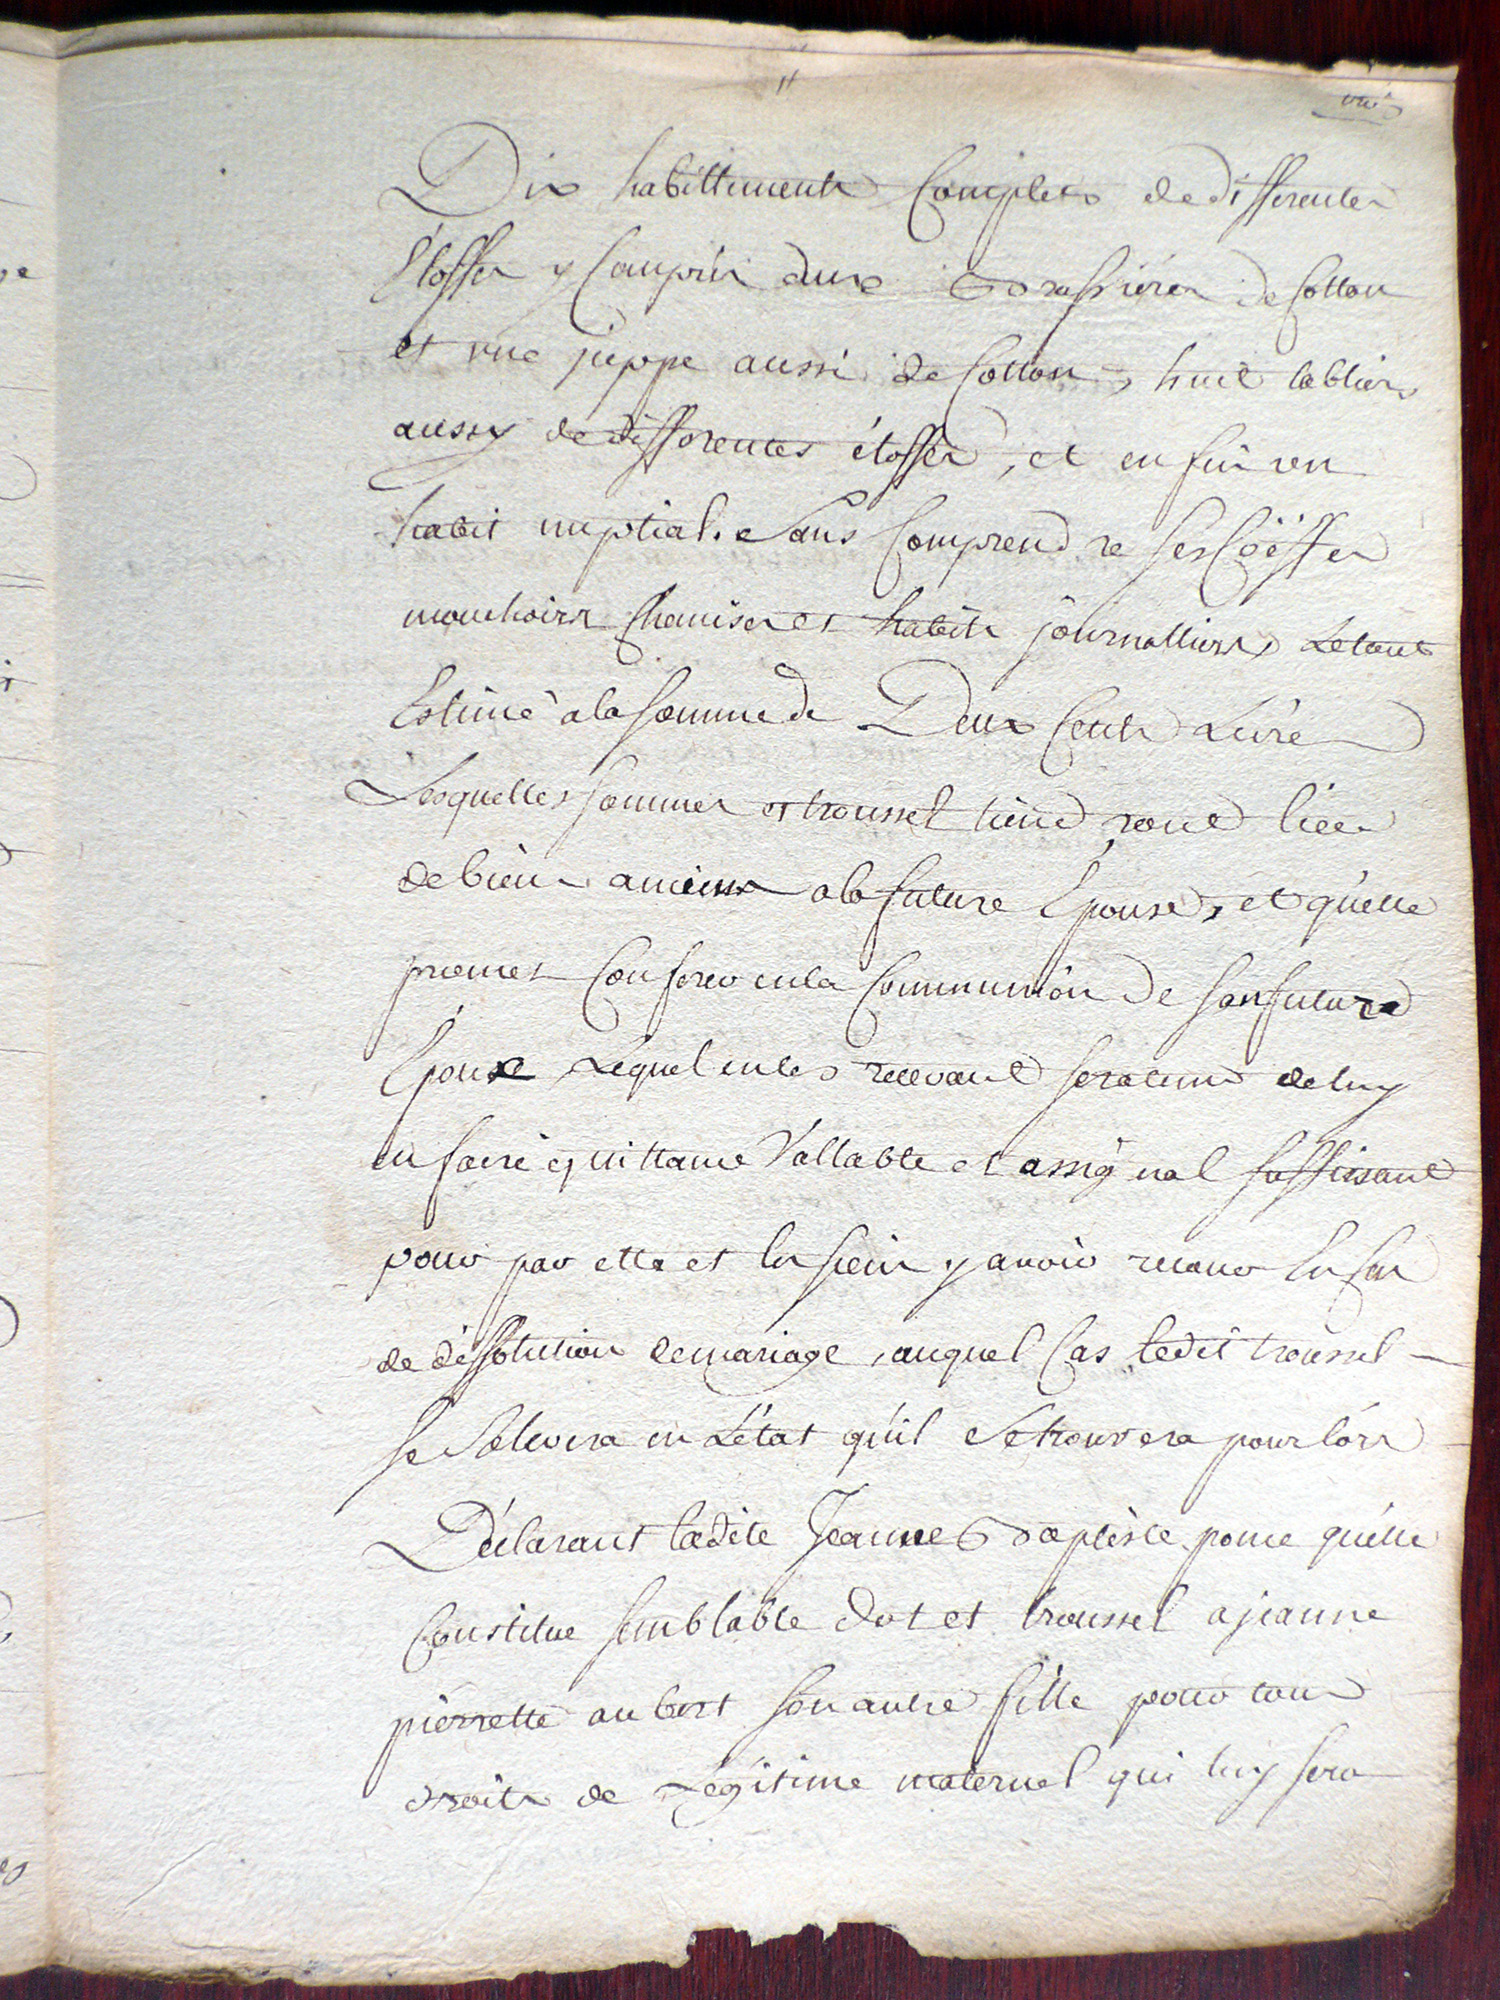 Dix habittements Complets de differentes
Etoffes y Compris deux Brassières de Cotton
et une juppe aussi de Cotton, huit tabliers
aussy de differentes étoffes, et enfin un
habit nuptial. Sans Comprendre ses Coëffes
mouchoirs Chemises et habits journalliers, Letout
Estimé a la somme de Deux Cents Livres
Lesquelles sommes et troussel tiendront lieu
de biens anciens a la future Epouse, et qu'elle
promet Conferer en la Communion de son futur
Epoux Lequel en les recevant sera tenu de luy
en faire quittance Vallable et assignal suffissant
pour par elle et les siens y avoir recour En Cas
de dissolution de mariage, auquel Cas ledit troussel
se relevera en L'état qu'il se trouvera pour lors
Déclarant ladite Jeanne Baptiste ponce qu'elle
Constitue semblable dot et troussel a jeanne
pierrette aubert son autre fille pour tous
droits de Legitime maternel qui luy sera